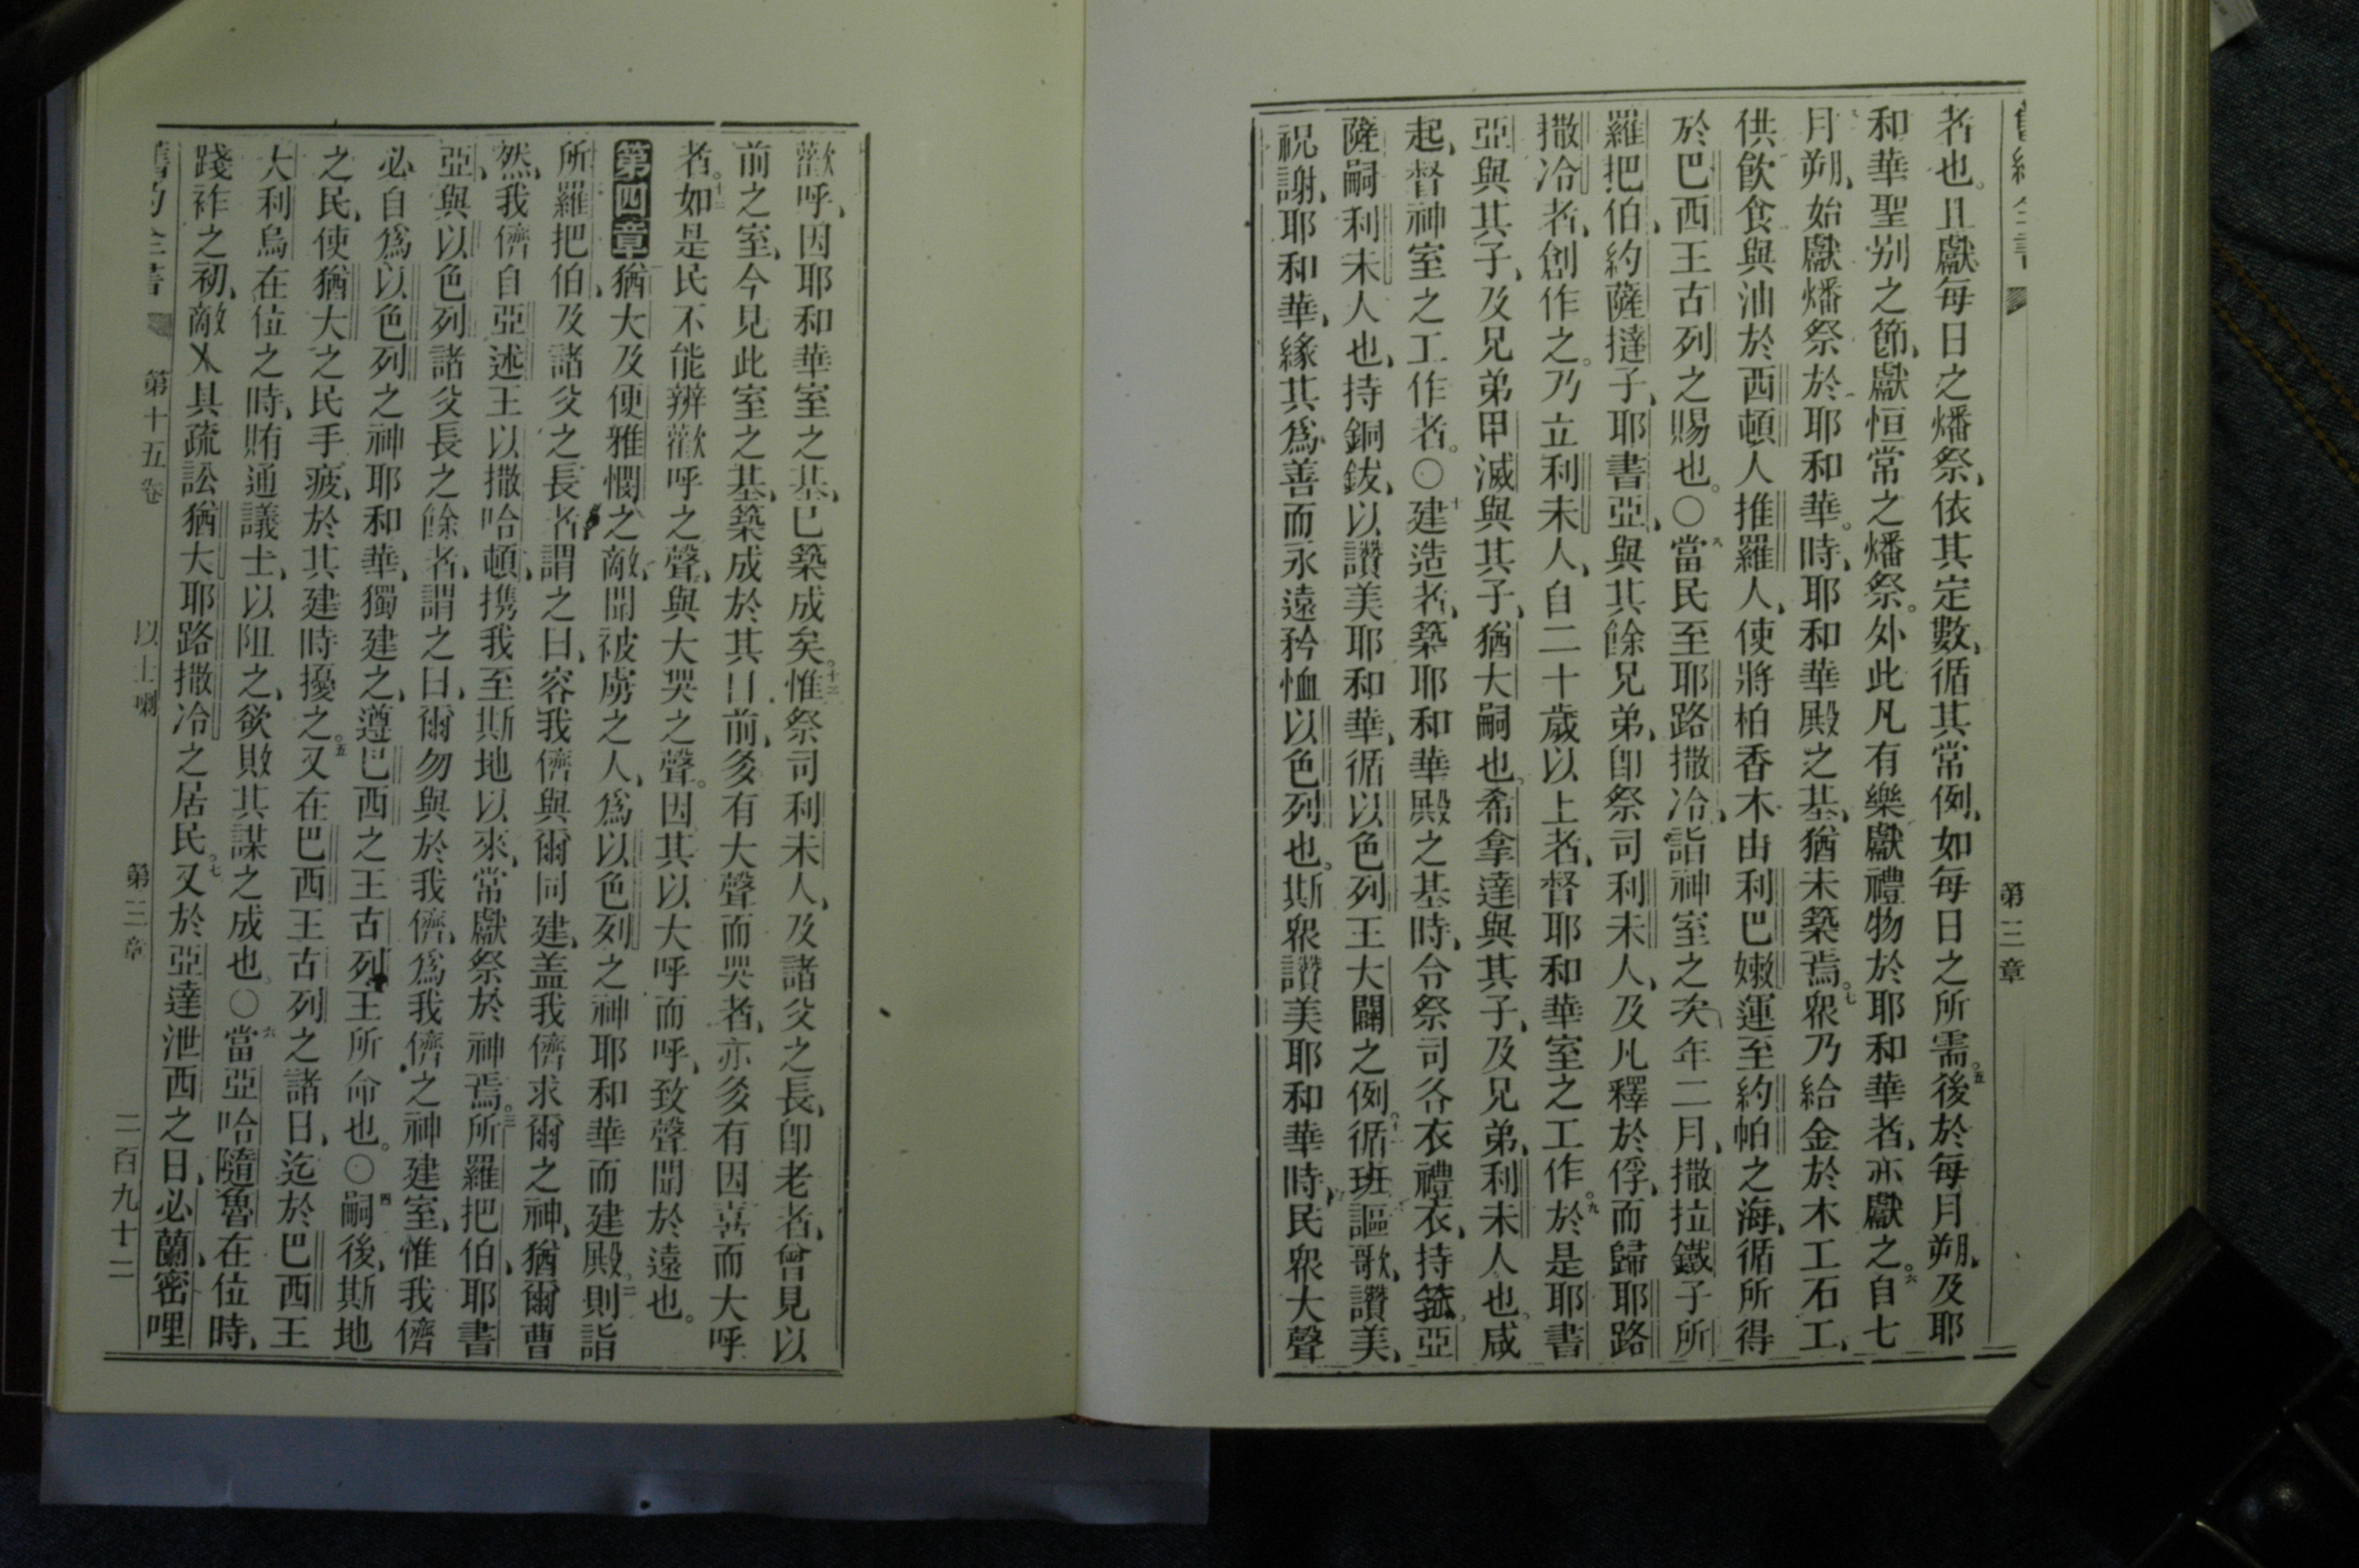 第三章
者也。且獻每日之燔祭、依其定數、循其常例、如每日之所需。五後於每月朔、及耶
和華聖別之節、獻恒常之燔祭。外此凡有樂獻禮物於耶和華者、亦獻之。六自七
月朔、始獻燔祭於耶和華。時、耶和華殿之基、猶未築焉。七衆乃給金於木工石工、
供飲食與油於西頓人推羅人、使將柏香木由利巴嫩運至約帕之海、循所得
於巴西王古列之賜也。○八當民至耶路撒冷、詣神室之次年二月、撒拉鐵子所
羅把伯、約薩撻子、耶書亞、與其餘兄弟、卽祭司利未人、及凡釋於俘、而歸耶路
撒冷者、創作之。乃立利未人、自二十歲以上者、督耶和華室之工作。九於是耶書
亞與其子、及兄弟甲滅與其子、猶大嗣也。希拿達與其子、及兄弟、利未人也。咸
起、督神室之工作者。○十建造者、築耶和華殿之基時、令祭司各衣禮衣、持箛、亞
薩嗣利未人也、持銅鈸、以讚美耶和華、循以色列王大闢之例。十一循班謳歌、讚美、
祝謝、耶和華、緣其爲善而永遠矜恤以色列也。斯衆讚美耶和華時、民衆大聲
歡呼、因耶和華室之基、已築成矣。十二惟祭司利未人、及諸父之長、卽老者、曾見以
前之室、今見此室之基、築成於其目前、多有大聲而哭者、亦多有因喜而大呼
者。十三如是民不能辨歡呼之聲、與大哭之聲。因其以大呼而呼、致聲聞於遠也。
第四章 猶大及便雅憫之敵、聞被虜之人、爲以色列之神耶和華而建殿。二則詣
所羅把伯、及諸父之長者、謂之曰、容我儕與爾同建、蓋我儕求爾之神、猶爾曹
然、我儕自亞述王以撒哈頓、携我至斯地以來、常獻祭於神焉。三所羅把伯、耶書
亞、與以色列諸父長之餘者、謂之曰、爾勿與於我儕、爲我儕之神建室、惟我儕
必自爲以色列之神耶和華、獨建之、遵巴西之王古列王所命也。○四嗣後、斯地
之民、使猶大之民手疲、於其建時擾之。五又在巴西王古列之諸日、迄於巴西王
大利烏在位之時、賄通議士、以阻之、欲敗其謀之成也。○六當亞哈隨魯在位時、
踐祚之初、敵人具疏訟猶大耶路撒冷之居民。七又於亞達泄西之日、必蘭、密哩
舊約全書 第十五卷 以士喇 第三章 二百九十二